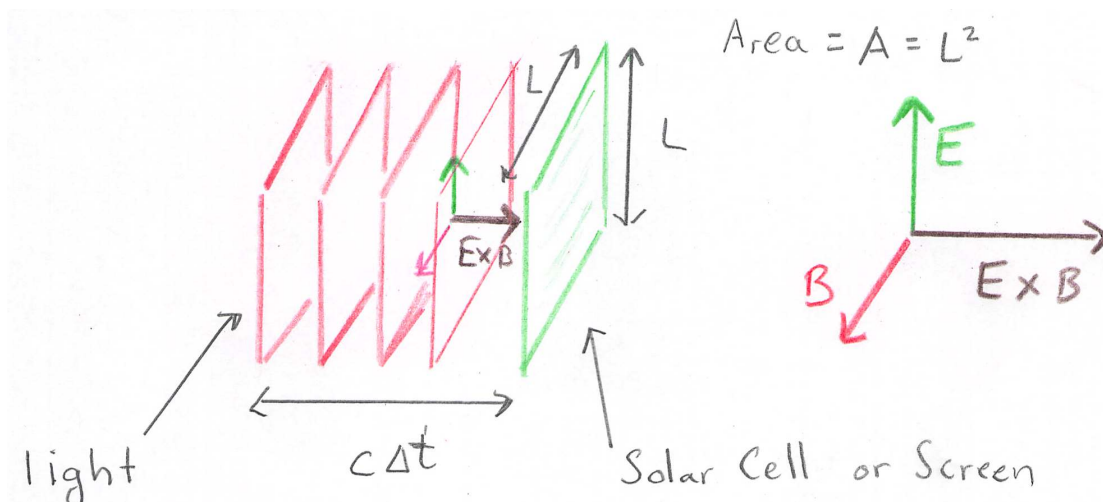 Area = A = L²
L
L
E
E x B
B
E x B
light
c Δt
Solar Cell or Screen